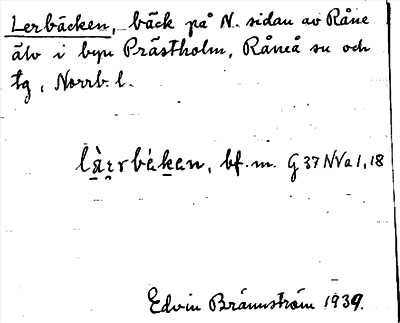 Lerbäcken, bäck på N. sidan av Råne
älv i byn Prästholm, Råneå sn och
tg, Norrb. l.
là̱ṛrbékan, bf. m. G 37 NVa 1, 18
Edvin Brännström 1939.